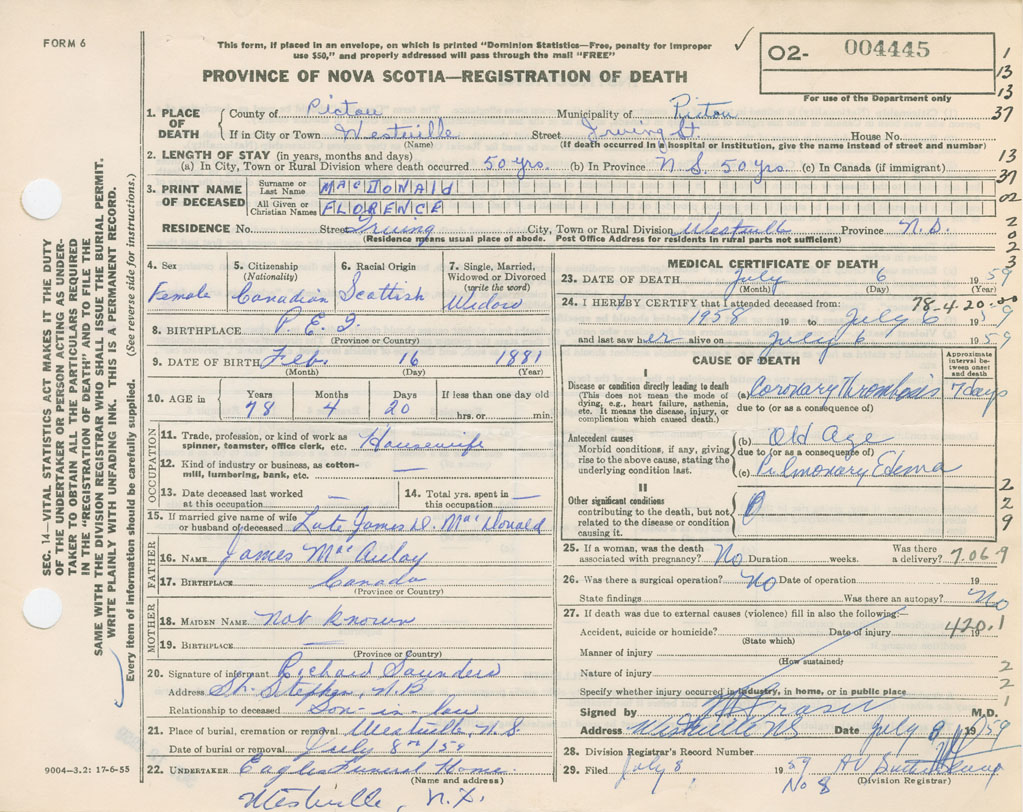 FORM 6
This form, if placed in an envelope, on which is printed "Dominion Statistics—Free, penalty for improper
use $50," and properly addressed will pass through the mail "FREE"
PROVINCE OF NOVA SCOTIA—REGISTRATION OF DEATH
02- 004445
For use of the Department only
1
13
13
37
13
37
02
2
0
2
0
2
3
SEC. 14—VITAL STATISTICS ACT MAKES IT THE DUTY
OF THE UNDERTAKER OR PERSON ACTING AS UNDER-
TAKER TO OBTAIN ALL THE PARTICULARS REQUIRED
IN THE "REGISTRATION OF DEATH" AND TO FILE THE
SAME WITH THE DIVISION REGISTRAR WHO SHALL ISSUE THE BURIAL PERMIT.
WRITE PLAINLY WITH UNFADING INK. THIS IS A PERMANENT RECORD.
Every item of information should be carefully supplied. (See reverse side for instructions.)
1. PLACE OF DEATH County of Pictou Municipality of Pictou
If in City or Town Westville Street Irving St. House No.
(Name) (If death occurred in a hospital or institution, give the name instead of street and number)
2. LENGTH OF STAY (in years, months and days)
(a) In City, Town or Rural Division where death occurred 50 yrs. (b) In Province N.S. 50 yrs. (c) In Canada (if immigrant)
3. PRINT NAME OF DECEASED Surname or Last Name MacDONALD
All Given or Christian Names FLORENCE
RESIDENCE No. Street Irving City, Town or Rural Division Westville Province N.S.
(Residence means usual place of abode. Post Office Address for residents in rural parts not sufficient)
4. Sex 5. Citizenship (Nationality) 6. Racial Origin 7. Single, Married, Widowed or Divorced (write the word)
Female Canadian Scottish Widow
8. BIRTHPLACE P.E.I.
(Province or Country)
9. DATE OF BIRTH Feb. 16 1881
(Month) (Day) (Year)
10. AGE in Years Months Days If less than one day old
78 4 20 hrs. or min.
OCCUPATION
11. Trade, profession, or kind of work as spinner, teamster, office clerk, etc. Housewife
12. Kind of industry or business, as cotton-mill, lumbering, bank, etc. —
13. Date deceased last worked at this occupation — 14. Total yrs. spent in this occupation —
15. If married give name of wife or husband of deceased Late James D. MacDonald
FATHER
16. NAME James MacAulay
17. BIRTHPLACE Canada
(Province or Country)
MOTHER
18. MAIDEN NAME Not known
19. BIRTHPLACE —
(Province or Country)
20. Signature of informant Richard Saunders
Address St. Stephen, N.B
Relationship to deceased Son-in-law
21. Place of burial, cremation or removal Westville, N.S.
Date of burial or removal July 8th/59
22. UNDERTAKER Eagles Funeral Home
(Name and address)
Westville, N.S.
9004—3.2: 17-6-55
MEDICAL CERTIFICATE OF DEATH
23. DATE OF DEATH July 6 1959
(Month) (Day) (Year)
24. I HEREBY CERTIFY that I attended deceased from: 78-4-20-00
1958 19 to July 6 1959
and last saw her alive on July 6 1959
CAUSE OF DEATH
Approximate interval between onset and death
I
Disease or condition directly leading to death
(This does not mean the mode of dying, e.g., heart failure, asthenia, etc. It means the disease, injury, or complication which caused death.)
(a) Coronary Thrombosis 7 days
due to (or as a consequence of)
Antecedent causes
Morbid conditions, if any, giving rise to the above cause, stating the underlying condition last.
(b) Old Age
due to (or as a consequence of)
(c) Pulmonary Edema
II
Other significant conditions
contributing to the death, but not related to the disease or condition causing it.
2
2
9
25. If a woman, was the death associated with pregnancy? No Duration weeks. Was there a delivery? 7.06.9
26. Was there a surgical operation? No Date of operation 19
State findings Was there an autopsy? No
27. If death was due to external causes (violence) fill in also the following:—
Accident, suicide or homicide? Date of injury 19 420.1
(State which)
Manner of injury
(How sustained)
Nature of injury
Specify whether injury occurred in industry, in home, or in public place
2
2
1
Signed by Fraser M.D.
Address Westville NS Date July 8 1959
28. Division Registrar's Record Number
29. Filed July 8 1959
No 8 (Division Registrar)